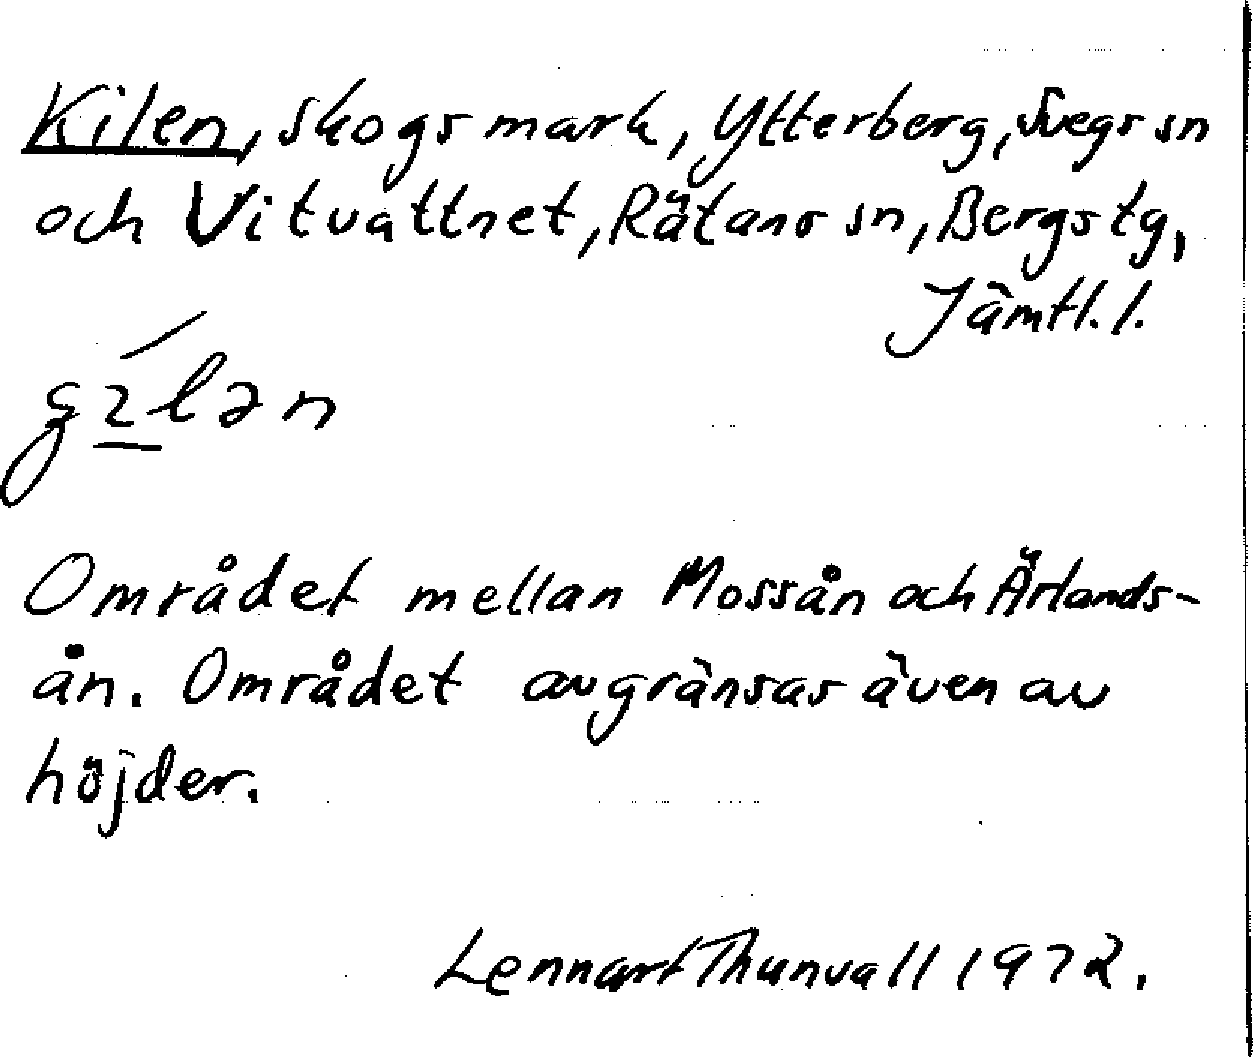 Kilen, skogsmark, Ytterberg, Svegs sn
och Vitvattnet, Rätans sn, Bergs tg,
Jämtl. l.
Området mellan Mossån och Ärlands-
ån. Området avgränsas även av
höjder.
Lennart Thunvall 1972.